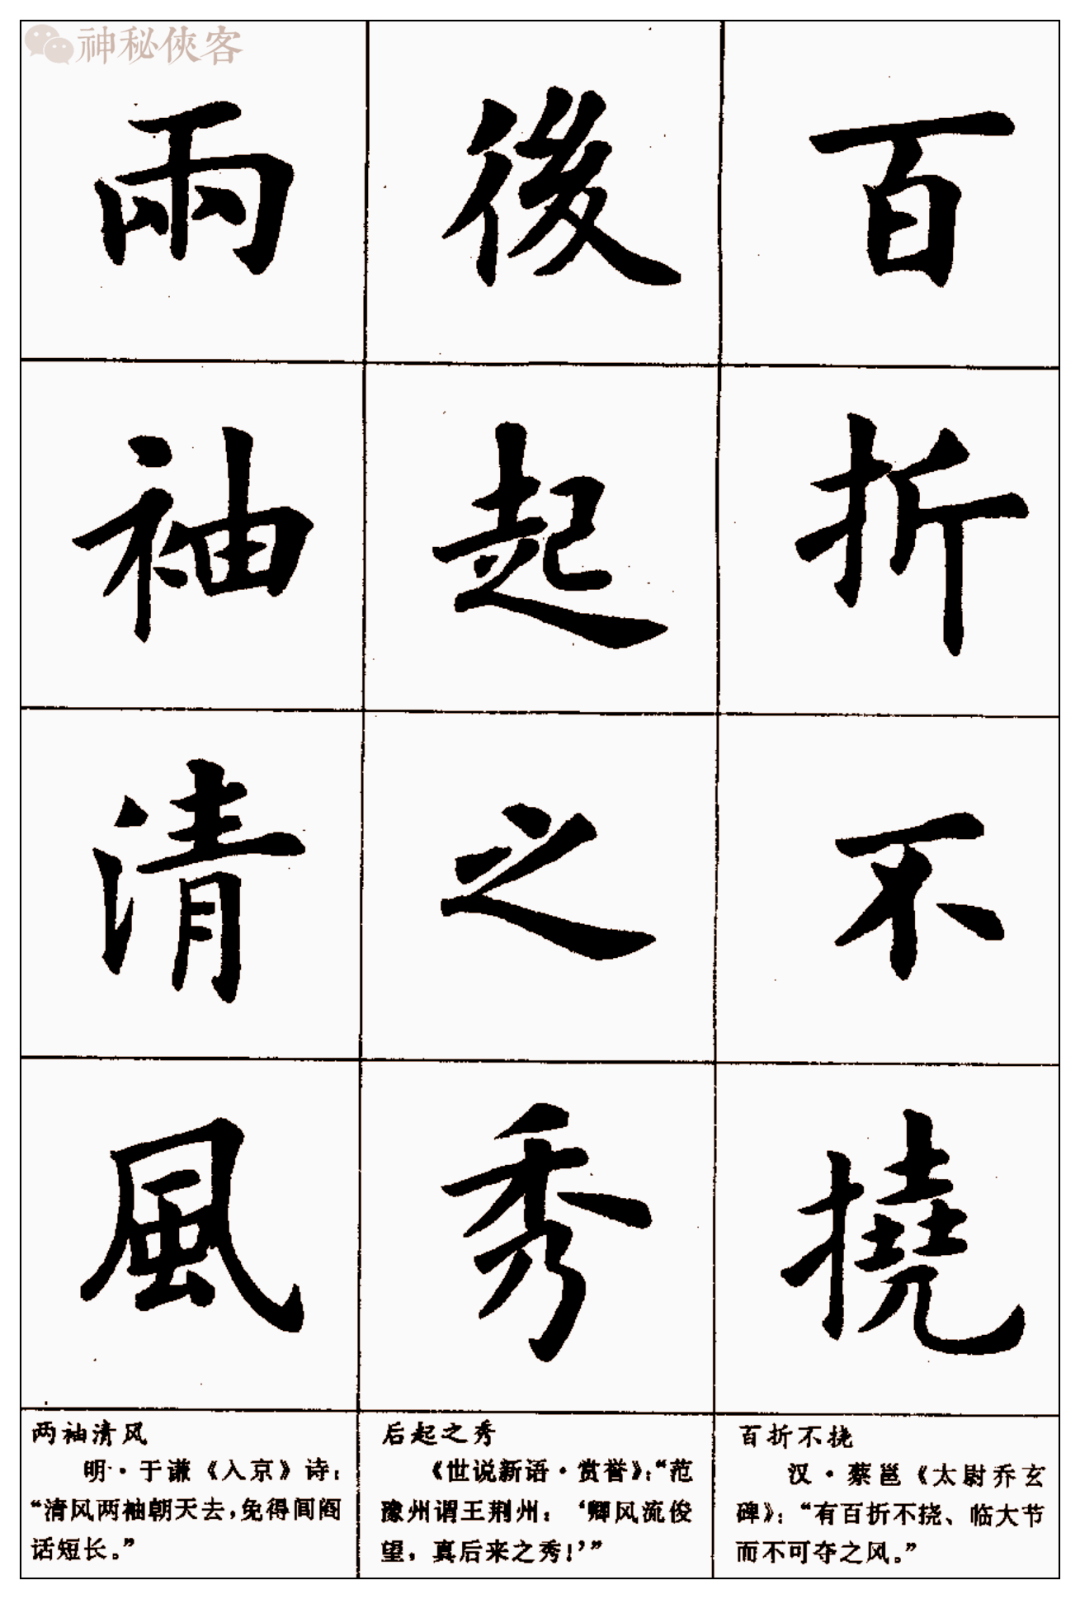 神秘侠客
百折不撓
後起之秀
兩袖清風
百折不挠
汉·蔡邕《太尉乔玄
碑》：“有百折不挠、临大节
而不可夺之风。”
后起之秀
《世说新语·赏誉》：“范
豫州谓王荆州：‘卿风流俊
望，真后来之秀！’”
两袖清风
明·于谦《入京》诗：
“清风两袖朝天去，免得闾阎
话短长。”